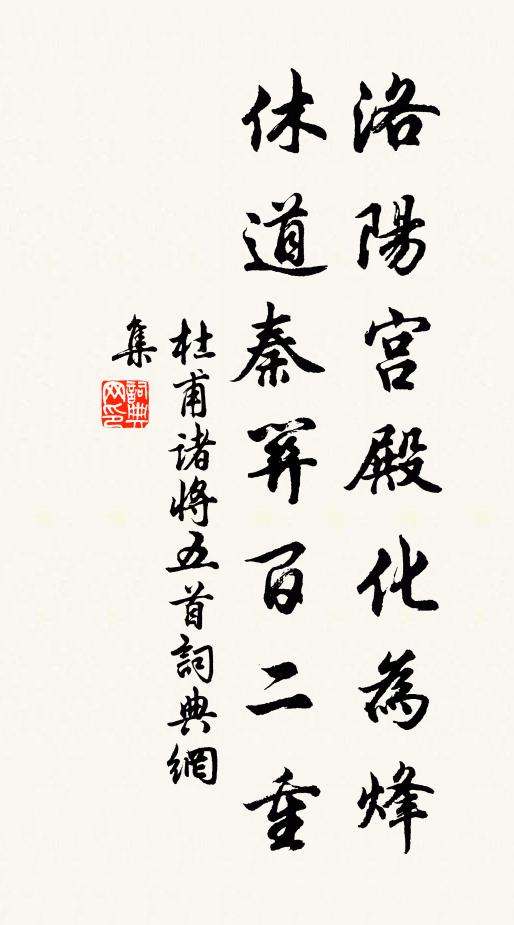 洛陽宮殿化為烽
休道秦關百二重
杜甫諸將五首詞典網
集
詞典網印